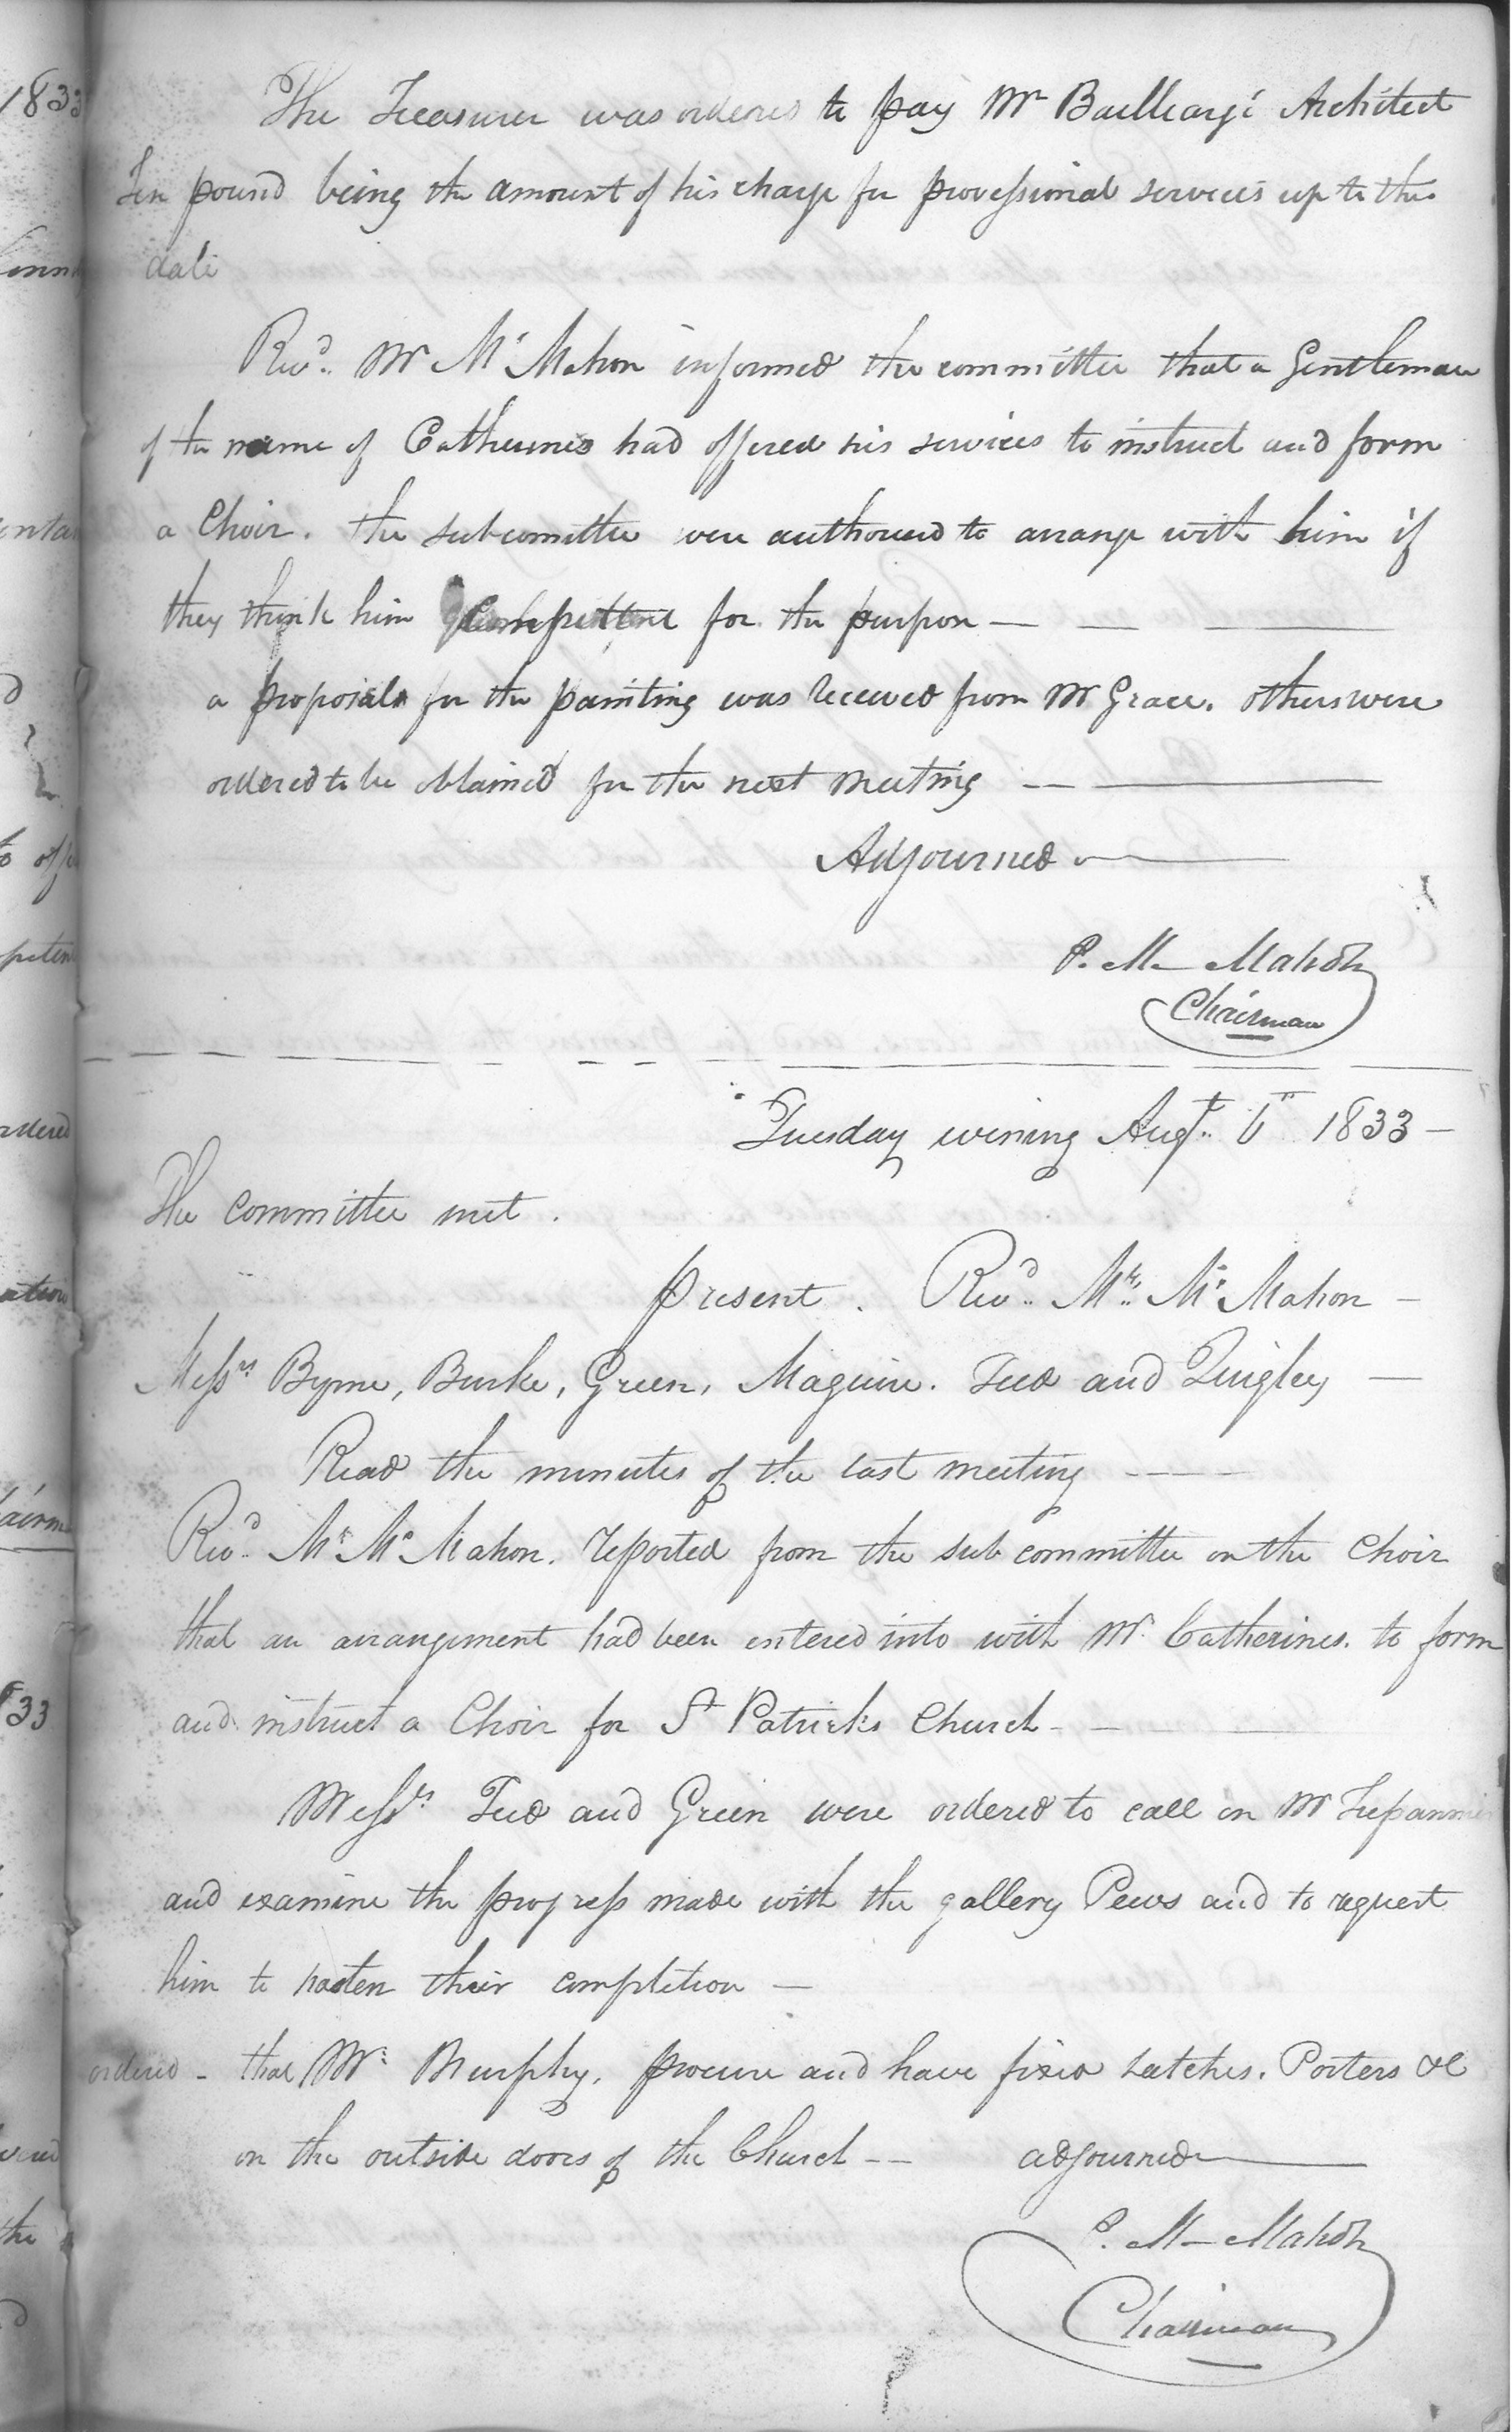 The Treasurer was ordered to pay Mr Bailleargé Architect
Ten pound being the amount of his charge for professional services up to this
date
Revd. Mr McMahon informed the committee that a Gentleman
of the name of Catherines had offered his services to instruct and form
a Choir. the subcomittee were authorised to arrange with him if
they think him Competent for the purpose — — —
a proposals for the painting was received from Mr Grace. others were
ordered to be obtained for the next meeting — —
Adjourned —
P. Mc Mahon
Chairman
Tuesday evening Augt. 6th 1833 —
The Committee met.
present. Revd. Mr. Mc Mahon —
Messrs Byrne, Burke, Green, Maguire. Teed and Quigley —
Read the minutes of the last meeting — —
Revd. Mr. Mc Mahon. reported from the sub committee on the Choir
that an arrangement had been entered into with Mr. Catherines. to form
and instruct a Choir for St Patricks Church - —
Messrs Teed and Green were ordered to call on Mr Trepannier
and examine the progress made with the gallery Pews and to request
him to hasten their completion —
ordered - that Mr. Murphy. procure and have fixed Latches. Porters &c
on the outside doors of the Church -- adjourned —
P. Mc Mahon
Chairman